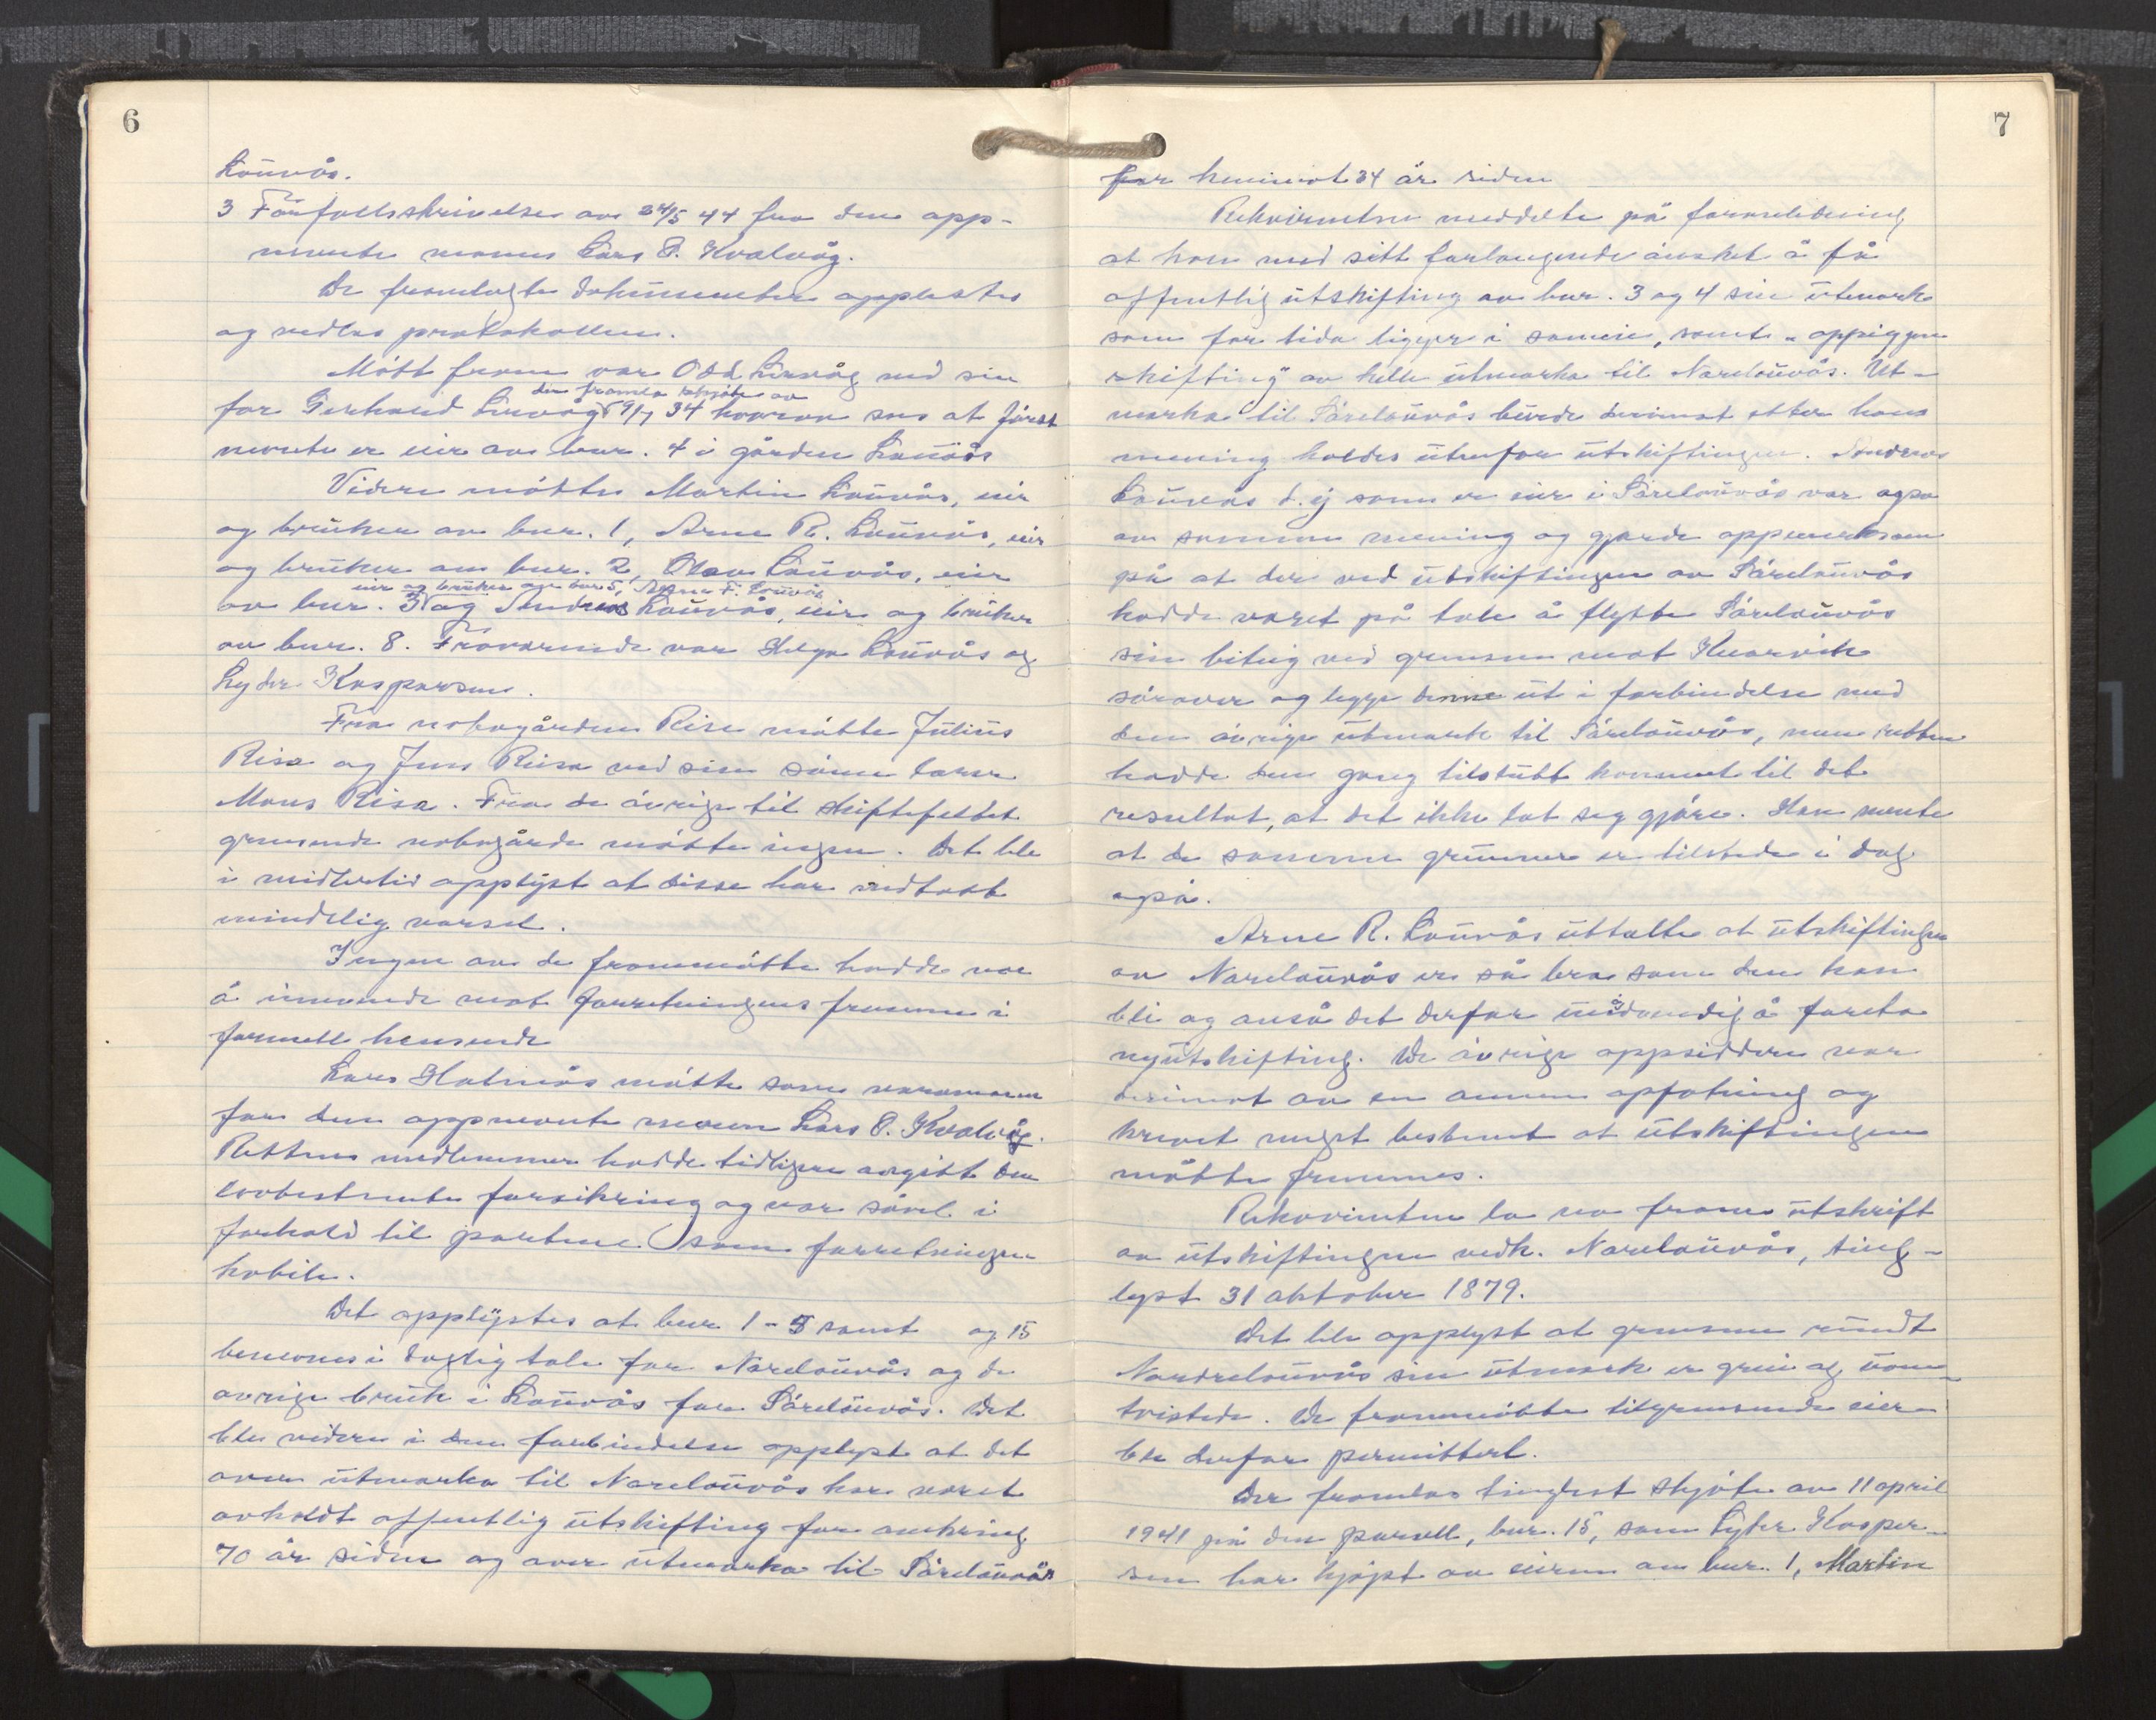 6
Lauvås.
3 Forfallsskrivelse av 24/5 44 fra den opp-
nevnte mann Lars P. Kvalvåg.
De framlagte dokumenter opplestes
og vedlas protokollen.
Møtt fram var Odd Lervåg ved sin
der framla skjøte av
far Gerhard Lervåg 9/7 34 hvorav sees at først
nevnte er eier av bnr. 4 i gården Lauvås
Videre møtte Martin Lauvås, eier
og bruker av bnr. 1, Arne R. Lauvås, eier
og bruker av bnr. 2, Olav Lauvås, eier
eier og bruker av bnr 5, Arne F. Lauvås
av bnr. 3 og Andreas Lauvås, eier og bruker
av bnr. 8. Fraværende var Helga Lauvås og
Lyder Kaspersen.
Fra nabogården Risa møtte Julius
Risa og Jens Risa ved sin sønn lærer
Mons Risa. Fra de øvrige til skiftefeltet
grensende nabogårde møtte ingen. Det ble
i midlertid opplyst at disse har vedtatt
mindelig varsel.
Ingen av de frammøtte hadde noe
å innvende mot forretningens fremme i
formell henseende
Lars Hatnås møtte som varamann
for den oppnevnte mann Lars P. Kvalvåg.
Rettens medlemmer hadde tidligere avgitt den
lovbestemte forsikring og var såvel i
forhold til partene som forretningen
habile.
Det opplystes at bnr 1-5 samt og 15
benevnes i daglig tale for Nordlauvås og de
øvrige bruk i Lauvås for Sørelauvås. Det
ble videre i den forbindelse opplyst at det
over utmarka til Norelauvås har været
avholdt offentlig utskifting for omkring
70 år siden og over utmarka til Sørelauvås
7
for henimot 34 år siden
Rekvirenten meddelte på foranledning
at han med sitt forlangende ønsket å få
offentlig utskifting av bnr. 3 og 4 sin utmark
som for tida ligger i sameie, samt „oppigjen
skifting" av hele utmarka til Norelauvås. Ut-
marka til Sørelauvås burde derimot etter hans
mening holdes utenfor utskiftingen. Andreas
Lauvås d. y som er eier i Sørelauvås var også
av samme mening og gjorde oppmerksom
på at der ved utskiftingen av Sørelauvås
hadde været på tale å flytte Sørelauvås
sin teig ved grensen mot Knarvik
sørover og legge denne ut i forbindelse med
den øvrige utmark til Sørelauvås, men retten
hadde den gang tilslutt kommet til det
resultat, at det ikke lot seg gjøre. Han mente
at de samme grunner er tilstede i dag
også.
Arne R. Lauvås uttalte at utskiftingen
av Norelauvås er så bra som den kan
bli og anså det derfor unødvendig å foreta
nyutskifting. De øvrige oppsiddere var
derimot av en annen opfatning og
krevet meget bestemt at utskiftingen
måtte fremmes.
Rekvirenten la no fram utskrift
av utskiftingen vedk. Norelauvås, ting-
lyst 31 oktober 1879.
Det ble opplyst at grensene rundt
Nordrelauvås sin utmark er grei og uom-
tvistede. De frammøtte tilgrensende eier
ble derfor permittert.
Der framlas tinglest skjøte av 11 april
1941 på den parsell, bnr. 15, som Lyder Kasper-
sen har kjøpt av eieren av bnr. 1, Martin